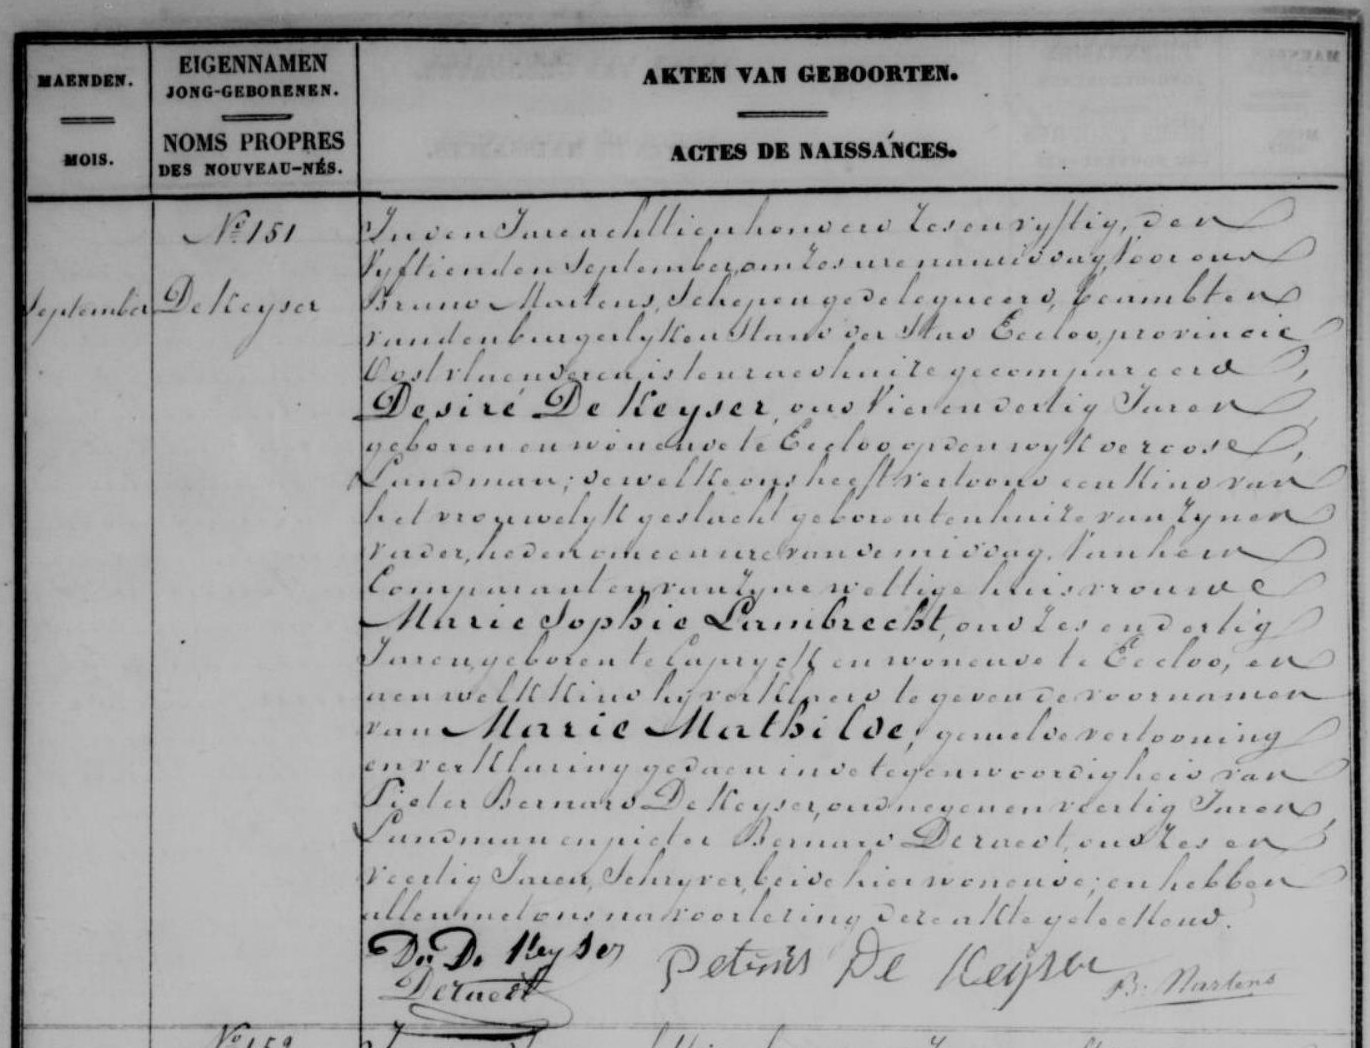 MAENDEN.
MOIS.
EIGENNAMEN
JONG-GEBORENEN.
NOMS PROPRES
DES NOUVEAU-NÉS.
AKTEN VAN GEBOORTEN.
ACTES DE NAISSANCES.
September
Nº 151
De Keyser
In den Jare achttien honderd Zes en vyftig, den
Vyftienden September, om Zes ure namiddag, Voor ons
Bruno Martens, Schepen gedelegueerd, beambten
van den burgerlyken Stand der Stad Eecloo, provincie
Oostvlaenderen, is ten raedhuize gecompareerd
Desiré De Keyser, oud Vierendertig Jaren
geboren en wonende te Eecloo op den wyk veroost,
Landman; dewelke ons heeft vertoond een Kind van
het vrouwelyk geslacht geboren ten huize van Zynen
vader, heden om een ure van de middag. Van hem
Comparant en van Zyne wettige huisvrouwe
Marie Sophie Lambrecht, oud Zes en dertig
Jaren, geboren te Capryck en wonende te Eecloo, en
aen welk Kind hy verklaerd te geven de voornamen
van Marie Mathilde, gemelde vertooning
en verklaring gedaen in de tegenwoordigheid van
Pieter Bernard De Keyser, oud negen en veertig Jaren
Landman en pieter Bernard Deraedt, oud Zes en
veertig Jaren, Schryver, beide hier wonende; en hebben
allen met ons na voorlezing dere akte geteekend.
De. D. Keyser
Petrus De Keyser
B. Martens
Deraedt
Nº 152